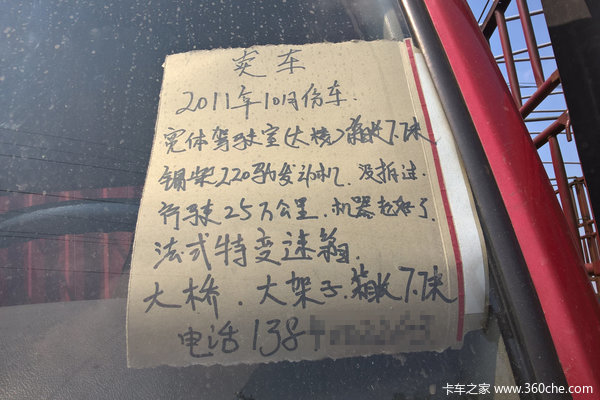 卖车
2011年10月份车.
宽体驾驶室(大梳)箱长7.7米
锡柴220马力发动机.没拆过.
行驶25万公里.机器赵和了
法式特变速箱.
大桥.大架子.箱长7.7米
电话138
卡车之家 www.360che.com